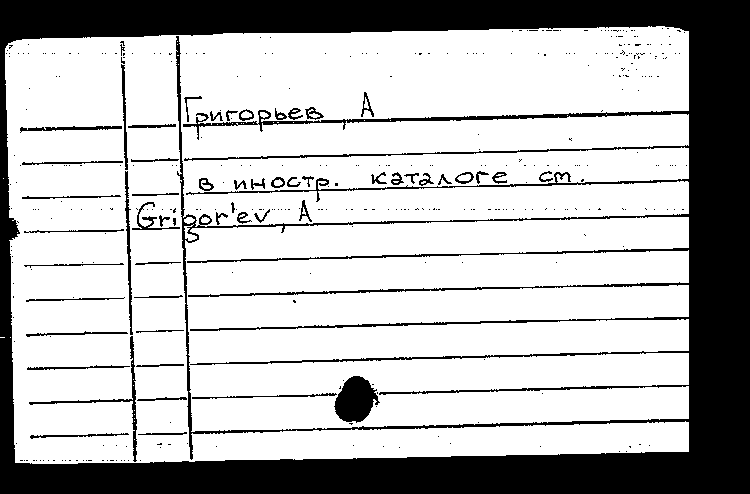 Григорьев, А
в иностр. каталоге ст.
Grigor'ev, A